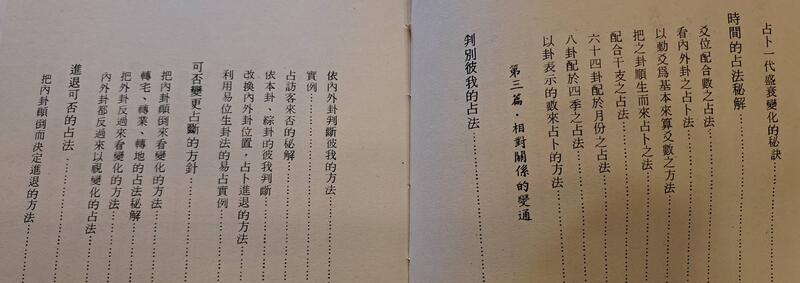 占卜一代盛衰變化的秘訣
時間的占法秘解
爻位配合數之占法
看內外卦之占卜法
以動爻爲基本來算爻數之方法
把之卦順生而來占卜之法
配合干支之占法
六十四卦配於月份之占法
八卦配於四季之占法
以卦表示的數來占卜的方法
第三篇·相對關係的變通
判別彼我的占法
依內外卦判斷彼我的方法
實例
占訪客來否的秘解
依本卦、綜卦的彼我判斷
改換內外卦位置，占卜進退的方法
利用易位生卦法的易占實例
可否變更占斷的方針
把內卦顛倒來看變化的方法
轉宅、轉業、轉地的占法秘解
把外卦反過來看變化的方法
內外卦都反過來以視變化的占法
進退可否的占法
把內卦顛倒而決定進退的方法